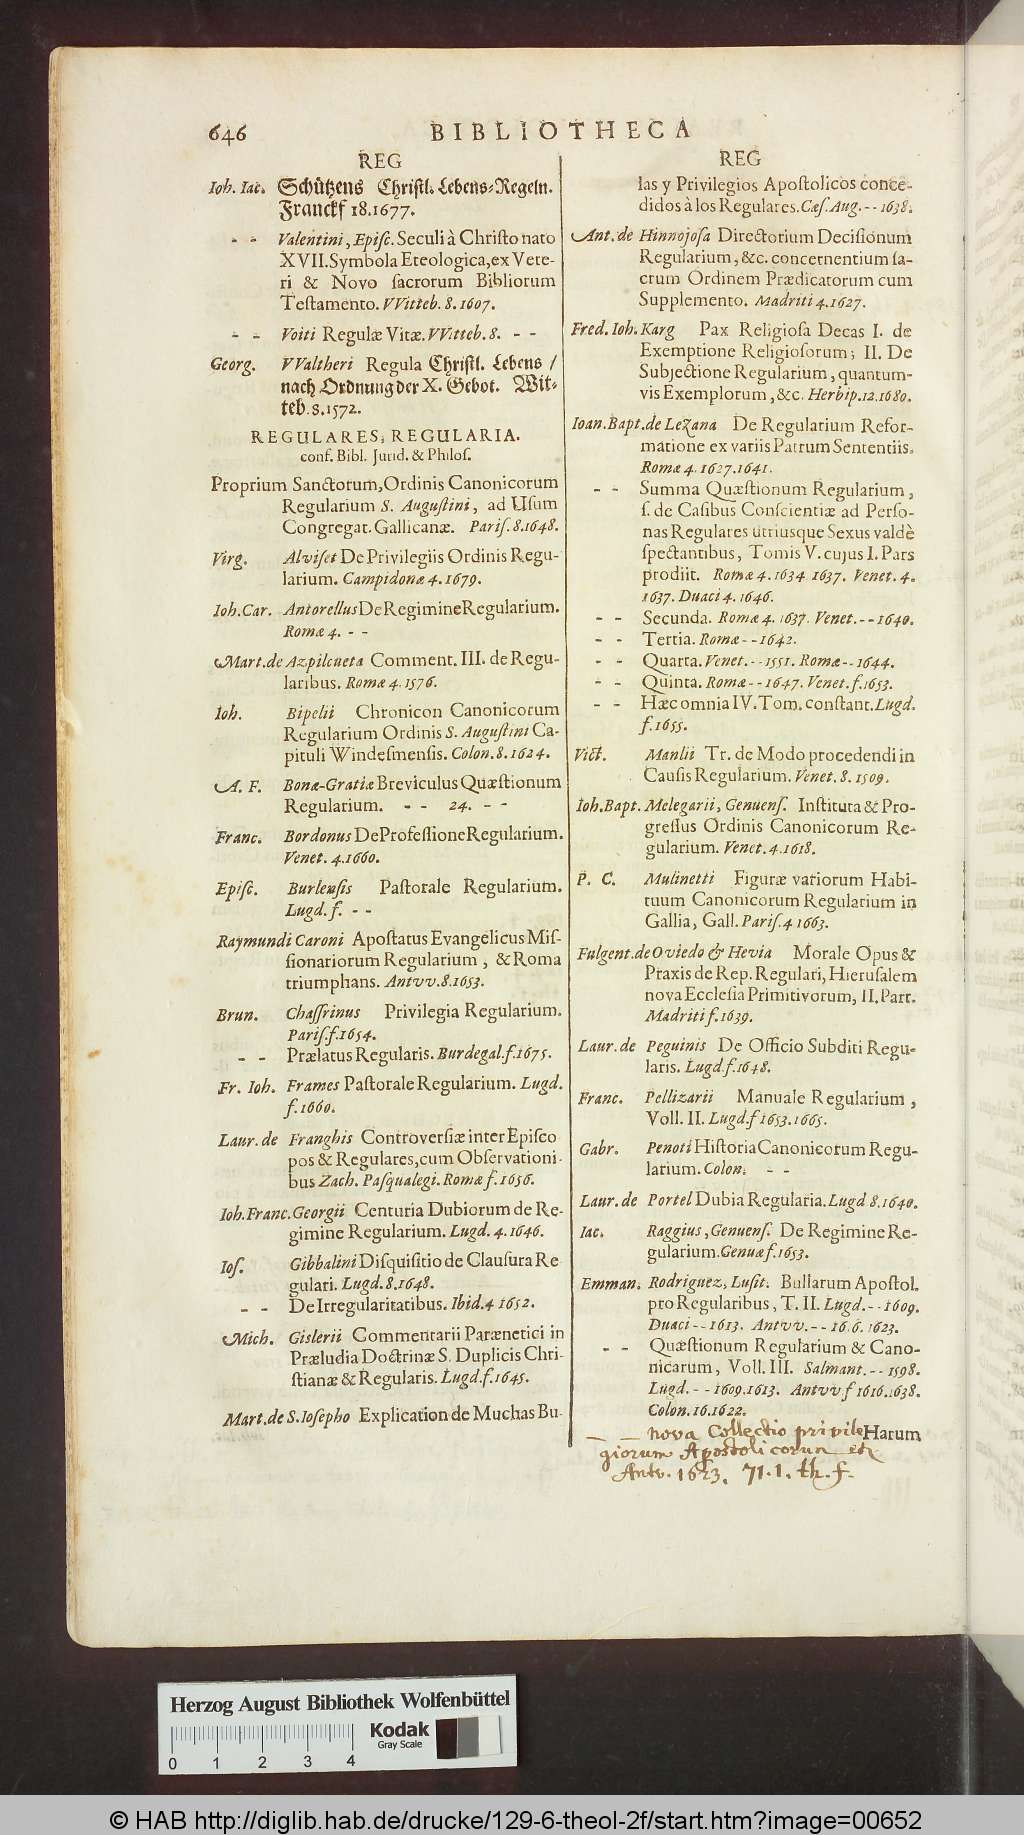 646
BIBLIOTHECA
REG
Ioh. Iac. Schützens Christl. Lebens-Regeln.
Franckf 18.1677.
- - Valentini, Episc. Seculi à Christo nato
XVII. Symbola Eteologica, ex Vete-
ri & Novo sacrorum Bibliorum
Testamento. VVitteb. 8. 1607.
- - Voiti Regulæ Vitæ. VVitteb. 8. - -
Georg. VValtheri Regula Christl. Lebens /
nach Ordnung der X. Gebot. Wit-
teb. 8. 1572.
REGULARES, REGULARIA.
conf. Bibl. Jurid. & Philos.
Proprium Sanctorum, Ordinis Canonicorum
Regularium S. Augustini, ad Usum
Congregat. Gallicanæ. Paris. 8. 1648.
Virg. Alviset De Privilegiis Ordinis Regu-
larium. Campidonæ 4. 1679.
Ioh. Car. Antorellus De Regimine Regularium.
Romæ 4. - -
Mart. de Azpilcueta Comment. III. de Regu-
laribus. Romæ 4. 1576.
Ioh. Bipelii Chronicon Canonicorum
Regularium Ordinis S. Augustini Ca-
pituli Windesmensis. Colon. 8. 1624.
A. F. Bonæ-Gratiæ Breviculus Quæstionum
Regularium. - - 24. - -
Franc. Bordonus De Professione Regularium.
Venet. 4. 1660.
Episc. Burlensis Pastorale Regularium.
Lugd. f. - -
Raymundi Caroni Apostatus Evangelicus Mis-
sionariorum Regularium, & Roma
triumphans. Antvv. 8. 1653.
Brun. Chassrinus Privilegia Regularium.
Paris. f. 1654.
- - Prælatus Regularis. Burdegal. f. 1675.
Fr. Ioh. Frames Pastorale Regularium. Lugd.
f. 1660.
Laur. de Franghis Controversiæ inter Episco
pos & Regulares, cum Observationi-
bus Zach. Pasqualegi. Romæ f. 1656.
Ioh. Franc. Georgii Centuria Dubiorum de Re-
gimine Regularium. Lugd. 4. 1646.
Ios. Gibbalini Disquisitio de Clausura Re
gulari. Lugd. 8. 1648.
- - De Irregularitatibus. Ibid. 4 1652.
Mich. Gislerii Commentarii Parænetici in
Præludia Doctrinæ S. Duplicis Chri-
stianæ & Regularis. Lugd. f. 1645.
Mart. de S. Iosepho Explication de Muchas Bu-
REG
las y Privilegios Apostolicos conce-
didos à los Regulares. Cæs. Aug. - - 1638.
Ant. de Hinnojosa Directorium Decisionum
Regularium, &c. concernentium sa-
crum Ordinem Prædicatorum cum
Supplemento. Madriti 4. 1627.
Fred. Ioh. Karg Pax Religiosa Decas I. de
Exemptione Religiosorum; II. De
Subjectione Regularium, quantum-
vis Exemplorum, &c. Herbip. 12. 1680.
Ioan. Bapt. de Lezana De Regularium Refor-
matione ex variis Patrum Sententiis.
Romæ 4. 1627. 1641.
- - Summa Quæstionum Regularium,
s. de Casibus Conscientiæ ad Perso-
nas Regulares utriusque Sexus valdè
spectantibus, Tomis V. cujus I. Pars
prodiit. Romæ 4. 1634 1637. Venet. 4.
1637. Duaci 4. 1646.
- - Secunda. Romæ 4. 1637. Venet. - - 1640.
- - Tertia. Romæ - - 1642.
- - Quarta. Venet. - - 1551. Romæ - - 1644.
- - Quinta. Romæ - - 1647. Venet. f. 1653.
- - Hæc omnia IV. Tom. constant. Lugd.
f. 1655.
Vict. Manlii Tr. de Modo procedendi in
Causis Regularium. Venet. 8. 1509.
Ioh. Bapt. Melegarii, Genuens. Instituta & Pro-
gressus Ordinis Canonicorum Re-
gularium. Venet. 4. 1618.
P. C. Mulinetti Figuræ variorum Habi-
tuum Canonicorum Regularium in
Gallia, Gall. Paris. 4 1663.
Fulgent. de Oviedo & Hevia Morale Opus &
Praxis de Rep. Regulari, Hierusalem
nova Ecclesia Primitivorum, II. Part.
Madriti f. 1639.
Laur. de Peguinis De Officio Subditi Regu-
laris. Lugd. f. 1648.
Franc. Pellizarii Manuale Regularium,
Voll. II. Lugd. f 1653. 1665.
Gabr. Penoti Historia Canonicorum Regu-
larium. Colon. - -
Laur. de Portel Dubia Regularia. Lugd 8. 1640.
Iac. Raggius, Genuens. De Regimine Re-
gularium. Genuæ f. 1653.
Emman. Rodriguez, Lusit. Bullarum Apostol.
pro Regularibus, T. II. Lugd. - - 1609.
Duaci - - 1613. Antvv. - - 16.6. 1623.
- - Quæstionum Regularium & Cano-
nicarum, Voll. III. Salmant. - - 1598.
Lugd. - - 1609. 1613. Antvv f 1616. 1638.
Colon. 16. 1622.
Harum
- - nova Collectio privile
giorum Apostolicorum etc
Antv. 1623. 71.1. th. f.
Herzog August Bibliothek Wolfenbüttel
Kodak
Gray Scale
0 1 2 3 4
© HAB http://diglib.hab.de/drucke/129-6-theol-2f/start.htm?image=00652